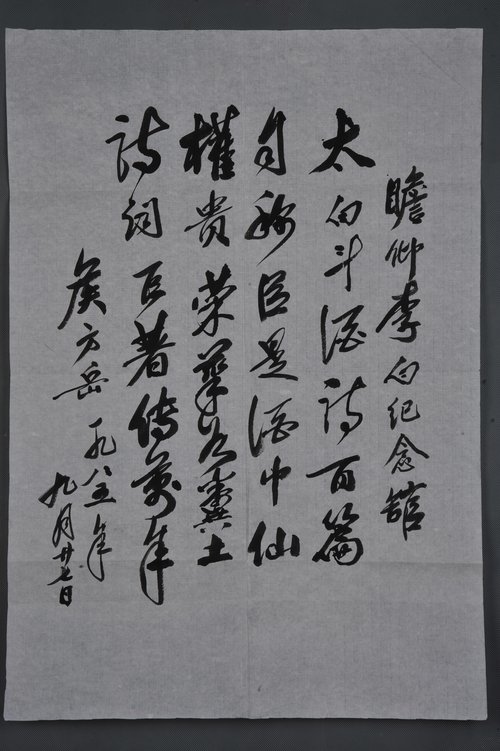 瞻仰李白纪念舘
太白斗酒诗百篇
自称臣是酒中仙
權贵荣華 糞土
诗词巨著傳萬年
侯方岳 一九八五年
九月廿七日